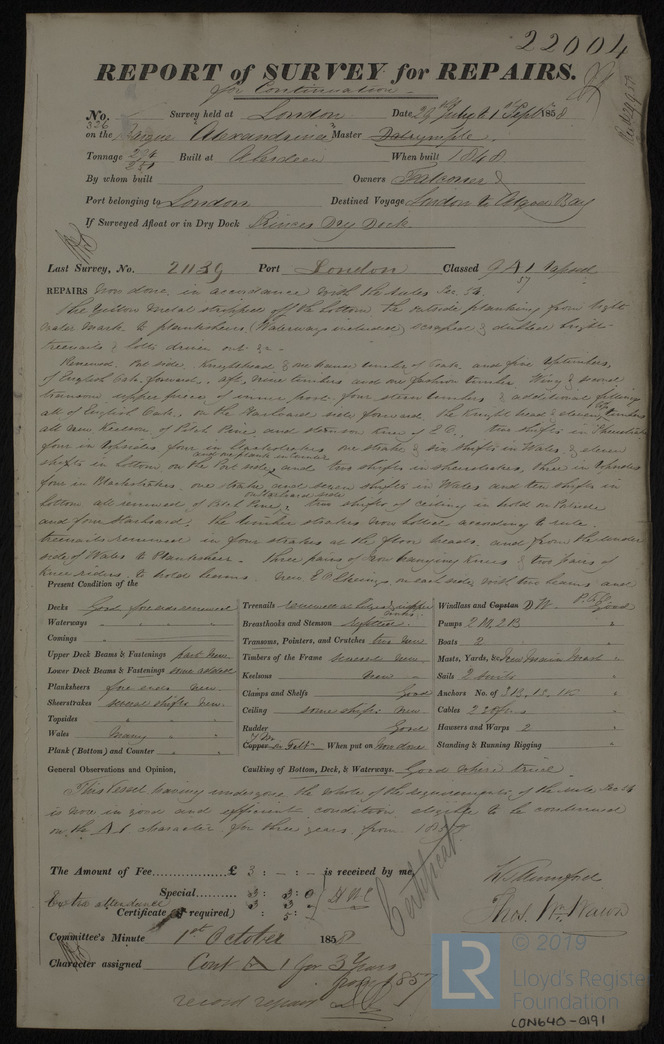 22004
REPORT of SURVEY for REPAIRS.
for Continuation
No. 326 Survey held at London Date 29th July & 1st Sept 1858
on the Brigue Alexandrina Master Dalrymple
Tonnage Built at Aberdeen When built 1848
By whom built Owners Falconer &
Port belonging to London Destined Voyage London to Algoa Bay
If Surveyed Afloat or in Dry Dock Princes Dry Dock
Last Survey, No. 21139 Port London Classed 9 A 1 57
REPAIRS Now done in accordance with the rules Sec. 54
The Yellow Metal stripped off the bottom the outside planking from light
water mark to plansheers (Waterways included) scraped & dubbed bright
treenails & bolts driven out &c
Renewed Port side, Knighthead & one hawse timber of Oak and five toptimbers
of English Oak forward, aft, nine timbers and one fashion timber Wing & second
transom upper piece of inner post four stern timbers & additional fillings
all of English Oak, on the Starboard side forward, the Knight head & eleven timbers
all new Keelson of Pitch Pine and stemson Knee of E.O., two shifts in Sheerstrakes
four in topsides four in blackstrakes one strake & six shifts in Wales, & eleven
shifts in bottom on the Port side, and two shifts in sheerstrakes, three in topsides
four in Blackstrakes, one strake and seven shifts in Wales and ten shifts in
bottom on Starboard side all renewed of Pitch Pine, two shifts of ceiling in hold on Port side
and four Starboard, the timber strakes now bolted according to rule.
treenails renewed in four strakes at the floor heads, and from the under
side of Wales to Plansheer. Three pairs of Iron hanging Knees & two pairs of
Knee riders to hold beams new E.O. on each side with two beams and
Present Condition of the
Decks Good fore ends renewed
Waterways " " "
Comings " " "
Upper Deck Beams & Fastenings part New
Lower Deck Beams & Fastenings some added
Planksheers fore ends New
Sheerstrakes several shifts New
Topsides " " "
Wales Many " "
Plank (Bottom) and Counter " "
Treenails renewed as
Breasthooks and Stemson
Transoms, Pointers, and Crutches two New
Timbers of the Frame several New
Keelsons New
Clamps and Shelfs Good
Ceiling some shifts New
Rudder Good
Copper When put on Now done
Windlass and Capstan Good
Pumps 2 M, 2 B "
Boats 2 "
Masts, Yards, &c New Main Mast "
Sails 2 Suits "
Anchors No. of 3 B, 1 S, 1 K "
Cables "
Hausers and Warps 2 "
Standing & Running Rigging "
General Observations and Opinion, Caulking of Bottom, Deck, & Waterways. Good where tried
This Vessel having undergone the whole of the requirements of the rule Sec 54
is now in good and efficient condition eligible to be continued
on the A 1 character for three years from 1857
The Amount of Fee.................. £ 3 : - : - is received by me,
Extra attendance Special.......... 3 : 3 : 0
Certificate (if required) : 5 :
Certificate
Committee's Minute 1st October 1858
Character assigned Cont A 1 for 3 Years
from 1857
record repair
© 2019
LR
Lloyd's Register
Foundation
LON640-0191